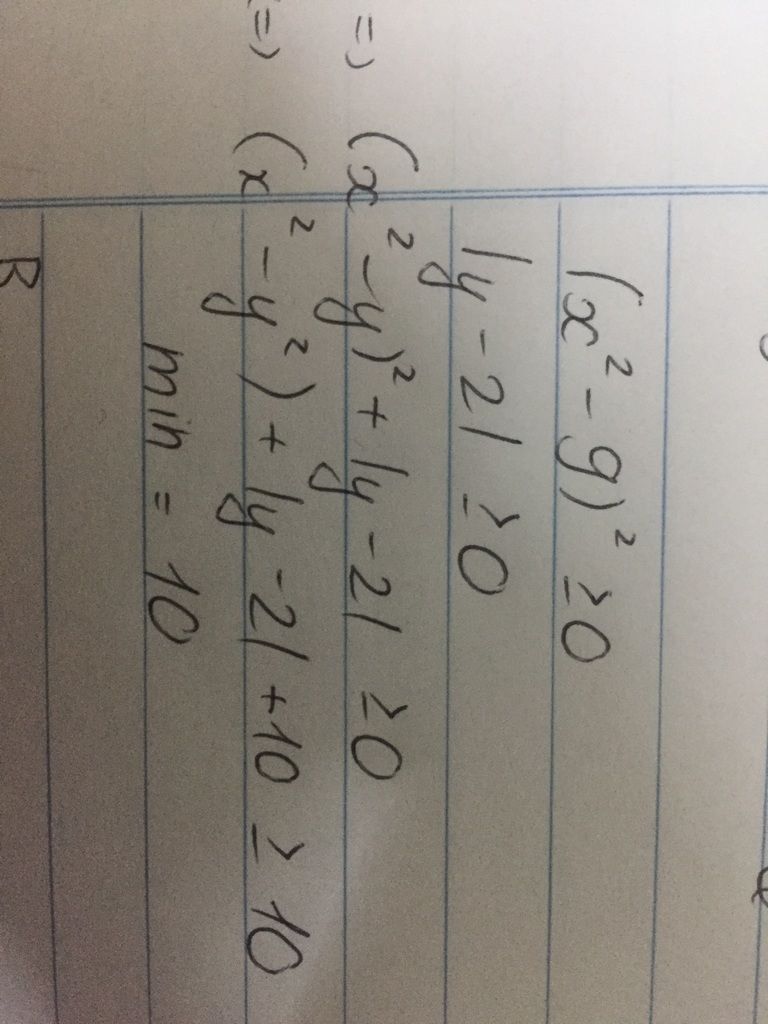 (x² - 9)² ≥ 0
|y - 2| ≥ 0
=> (x² - y)² + |y - 2| ≥ 0
=> (x² - y²) + |y - 2| + 10 ≥ 10
min = 10
B